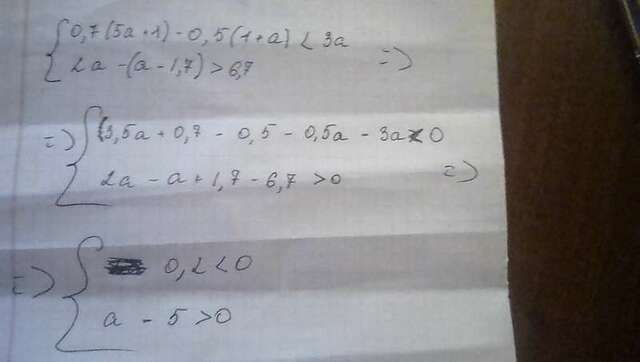 { 0,7(5a+1) - 0,5(1+a) < 3a
2a - (a - 1,7) > 6,7 =>
=> { 3,5a + 0,7 - 0,5 - 0,5a - 3a < 0
2a - a + 1,7 - 6,7 > 0 =>
=> { 0,2 < 0
a - 5 > 0